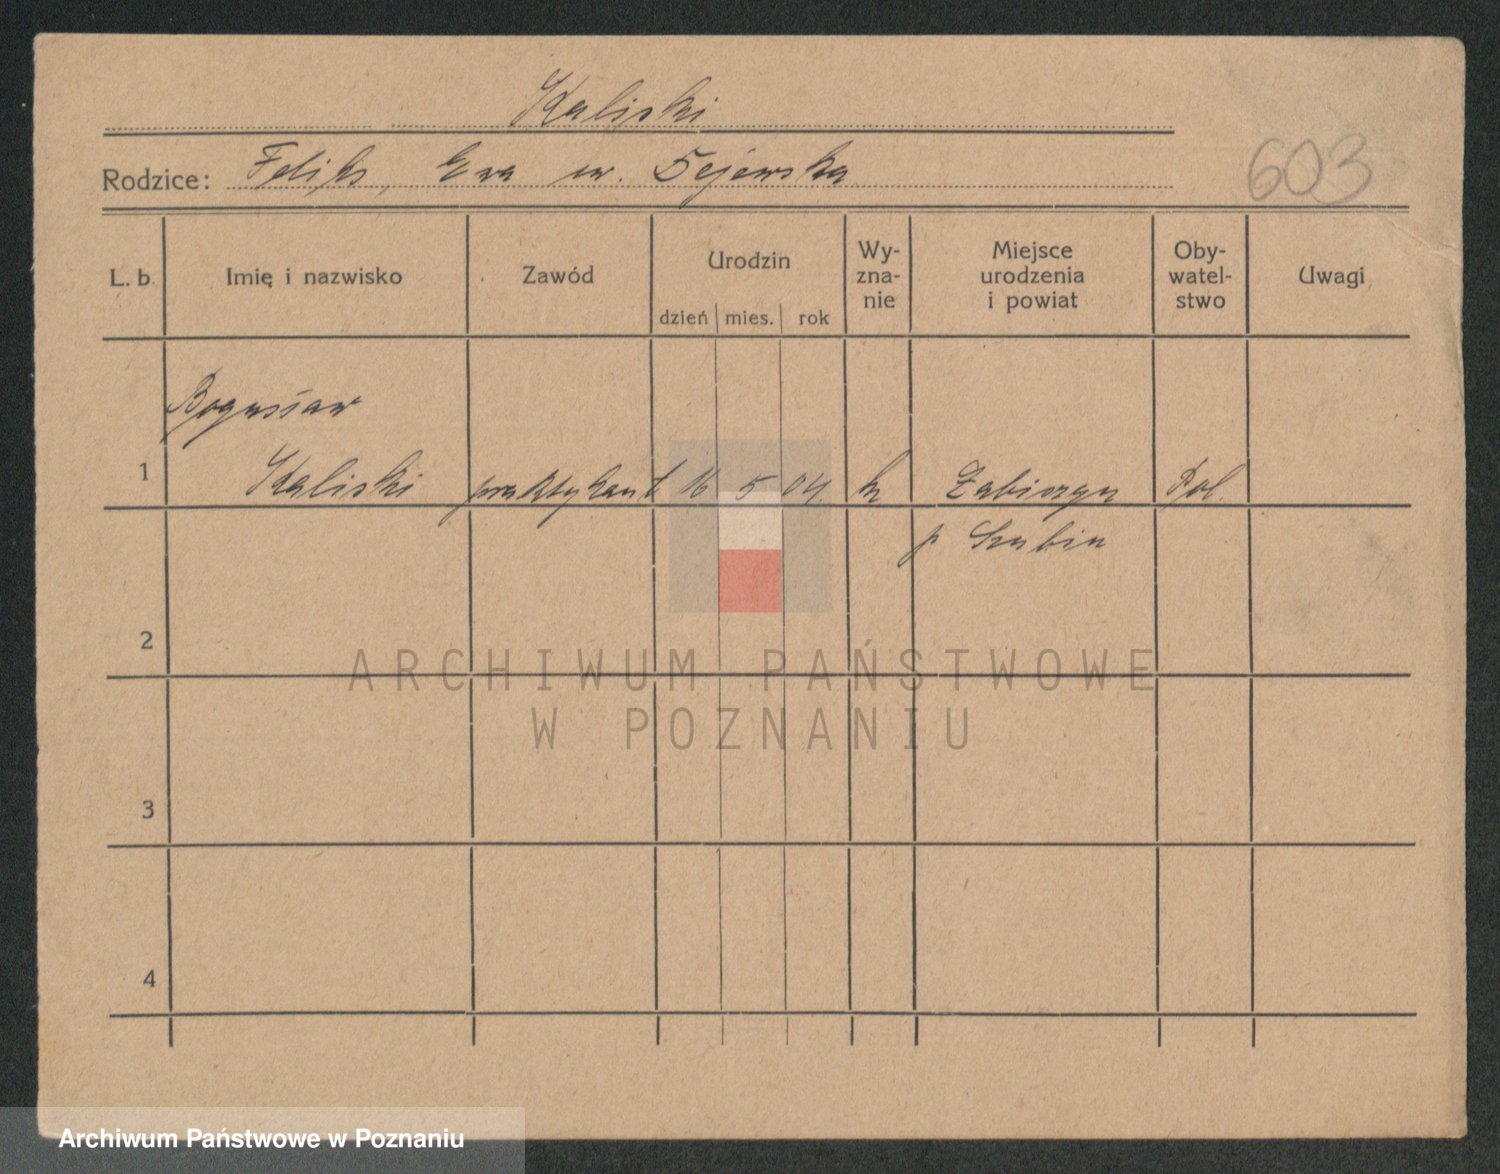 Kaliski
Rodzice: Feliks, Ewa ur. Dejewska
603
L. b. Imię i nazwisko Zawód Urodzin dzień mies. rok Wy-zna-nie Miejsce urodzenia i powiat Oby-watel-stwo Uwagi
Bogusław
1 Kaliski praktykant 16 5 04. k Żabiczyn Pol.
p Szubin
2
ARCHIWUM PAŃSTWOWE
W POZNANIU
3
4
Archiwum Państwowe w Poznaniu